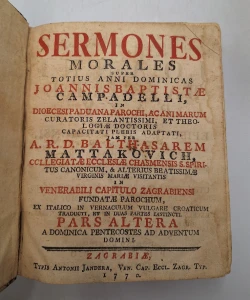 SERMONES
MORALES
SUPER
TOTIUS ANNI DOMINICAS
JOANNIS BAPTISTÆ
CAMPADELLI,
IN
DIOECESI PADUANA PAROCHI, AC ANIMARUM
CURATORIS ZELANTISSIMI, ET THEO-
LOGIÆ DOCTORIS
CAPACITATI PLEBIS ADAPTATI,
JAM PER
A. R. D. BALTHASAREM
MATTAKOVICH,
COLLEGIATÆ ECCLESIÆ CHASMENSIS S. SPIRI-
TUS CANONICUM, & ALTERIUS BEATISSIMÆ
VIRGINIS MARIÆ VISITANTIS
IN
VENERABILI CAPITULO ZAGRABIENSI
FUNDATÆ PAROCHUM,
EX ITALICO IN VERNACULUM VULGARE CROATICUM
TRADUCTI, ET IN DUAS PARTES DISTINCTI.
PARS ALTERA
A DOMINICA PENTECOSTES AD ADVENTUM
DOMINI.
ZAGRABIÆ,
Typis Antonii Jandera, Ven. Cap. Eccl. Zagr. Typ.